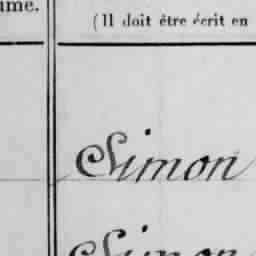 ume.
(Il doit être écrit en
Simon
Simon